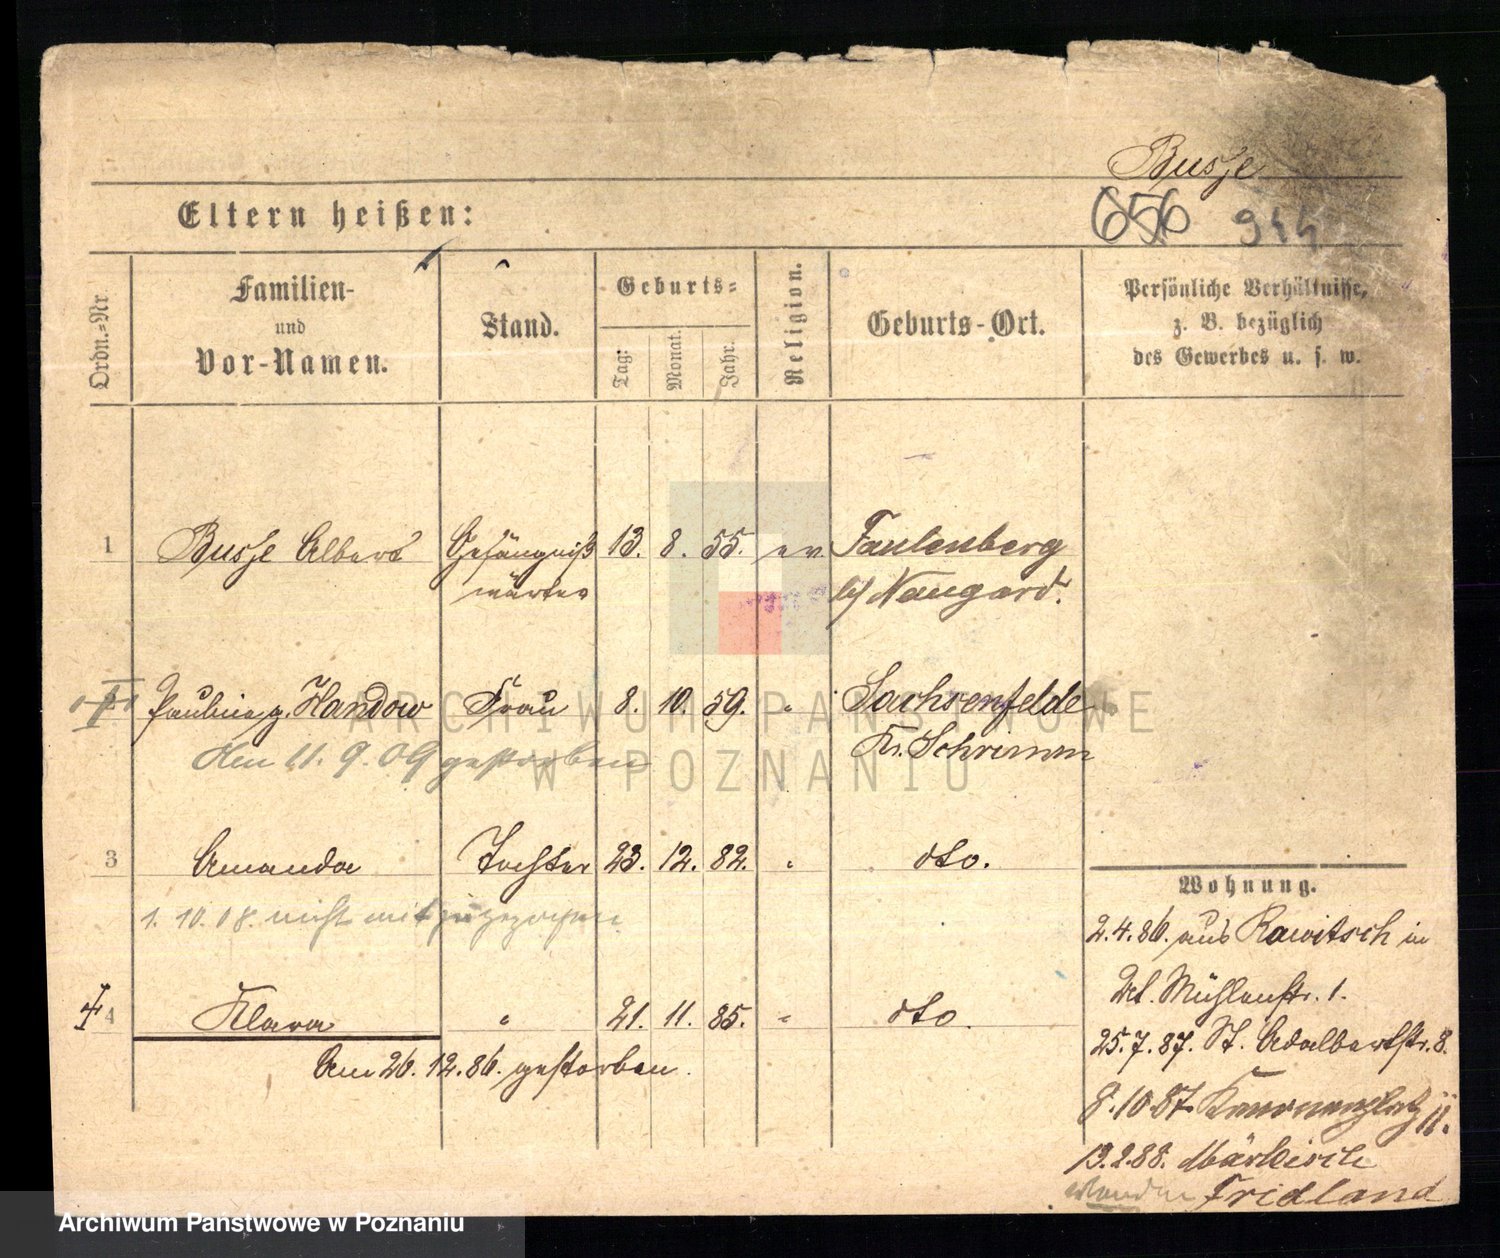 Busse
656 944
Eltern heißen:
Ordn.=Nr
Familien-
und
Vor-Namen.
Stand.
Geburts=
Tag:
Monat.
Jahr.
Religion.
Geburts-Ort.
Persönliche Verhältnisse,
z. B. bezüglich
des Gewerbes u. s. w.
1 Busse Albert Gefängniß 13. 8. 55. ev. Faulenberg
wärter b/ Naugard.
Pauline g. Handow Frau 8. 10. 59. " Sachsenfelde
Kr. Schrimm
Am 11. 9. 09 gestorben
3 Amanda Tochter 23. 12. 82. " dto.
1. 10. 08. nicht mit zugezogen
4 Klara " 21. 11. 85. " dto.
Am 26. 12. 86. gestorben.
Wohnung.
2.4.86. aus Rawitsch in
Mühlenstr. 1.
25.7.87. St. Adalbertstr. 8.
8.10.87. Kanonenplatz 11.
13.2.88. Märkisch
Fridland
ARCHIWUM PAŃSTWOWE
W POZNANIU
Archiwum Państwowe w Poznaniu